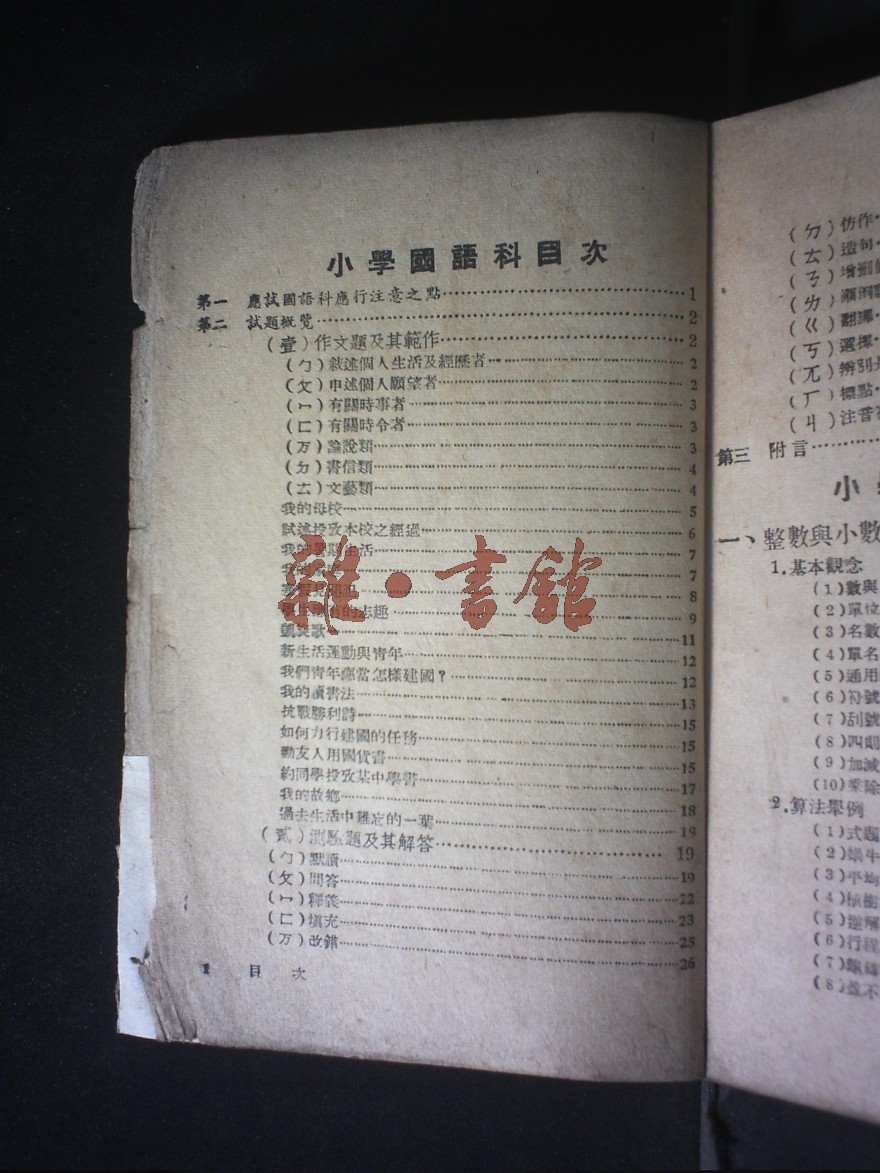 小學國語科目次
第一 應試國語科應行注意之點……1
第二 試題概覽……2
(壹)作文題及其範作……2
(ㄅ)敍述個人生活及經歷者……2
(ㄆ)申述個人願望者……2
(ㄇ)有關時事者……3
(ㄈ)有關時令者……3
(万)論說類……3
(ㄉ)書信類……4
(ㄊ)文藝類……4
我的母校……5
試述投攷本校之經過……6
我的暑期生活……7
我的……7
……8
學生應有的志趣……9
凱旋歌……11
新生活運動與靑年……12
我們靑年應當怎樣建國?……12
我的讀書法……13
抗戰勝利詩……15
如何力行建國的任務……15
勸友人用國貨書……15
約同學投攷某中學書……17
我的故鄉……18
過去生活中難忘的一葉……19
(貳)測驗題及其解答……19
(ㄅ)默讀……19
(ㄆ)問答……22
(ㄇ)釋義……23
(ㄈ)填充……25
(万)改錯……26
目 次
雜·書館
(ㄉ)仿作
(ㄊ)造句
(ㄋ)增刪
(ㄌ)
(ㄍ)翻譯
(ㄎ)選擇
(兀)辨別是
(ㄏ)標點
(ㄐ)注音
第三 附言……
小
一、整數與小數
1.基本觀念
(1)數與
(2)單位
(3)名數
(4)單名
(5)通用
(6)符號
(7)括號
(8)四則
(9)加減
(10)乘除
2.算法舉例
(1)式題
(2)蝸牛
(3)平均
(4)植樹
(5)還解
(6)行程
(7)
(8)盈不